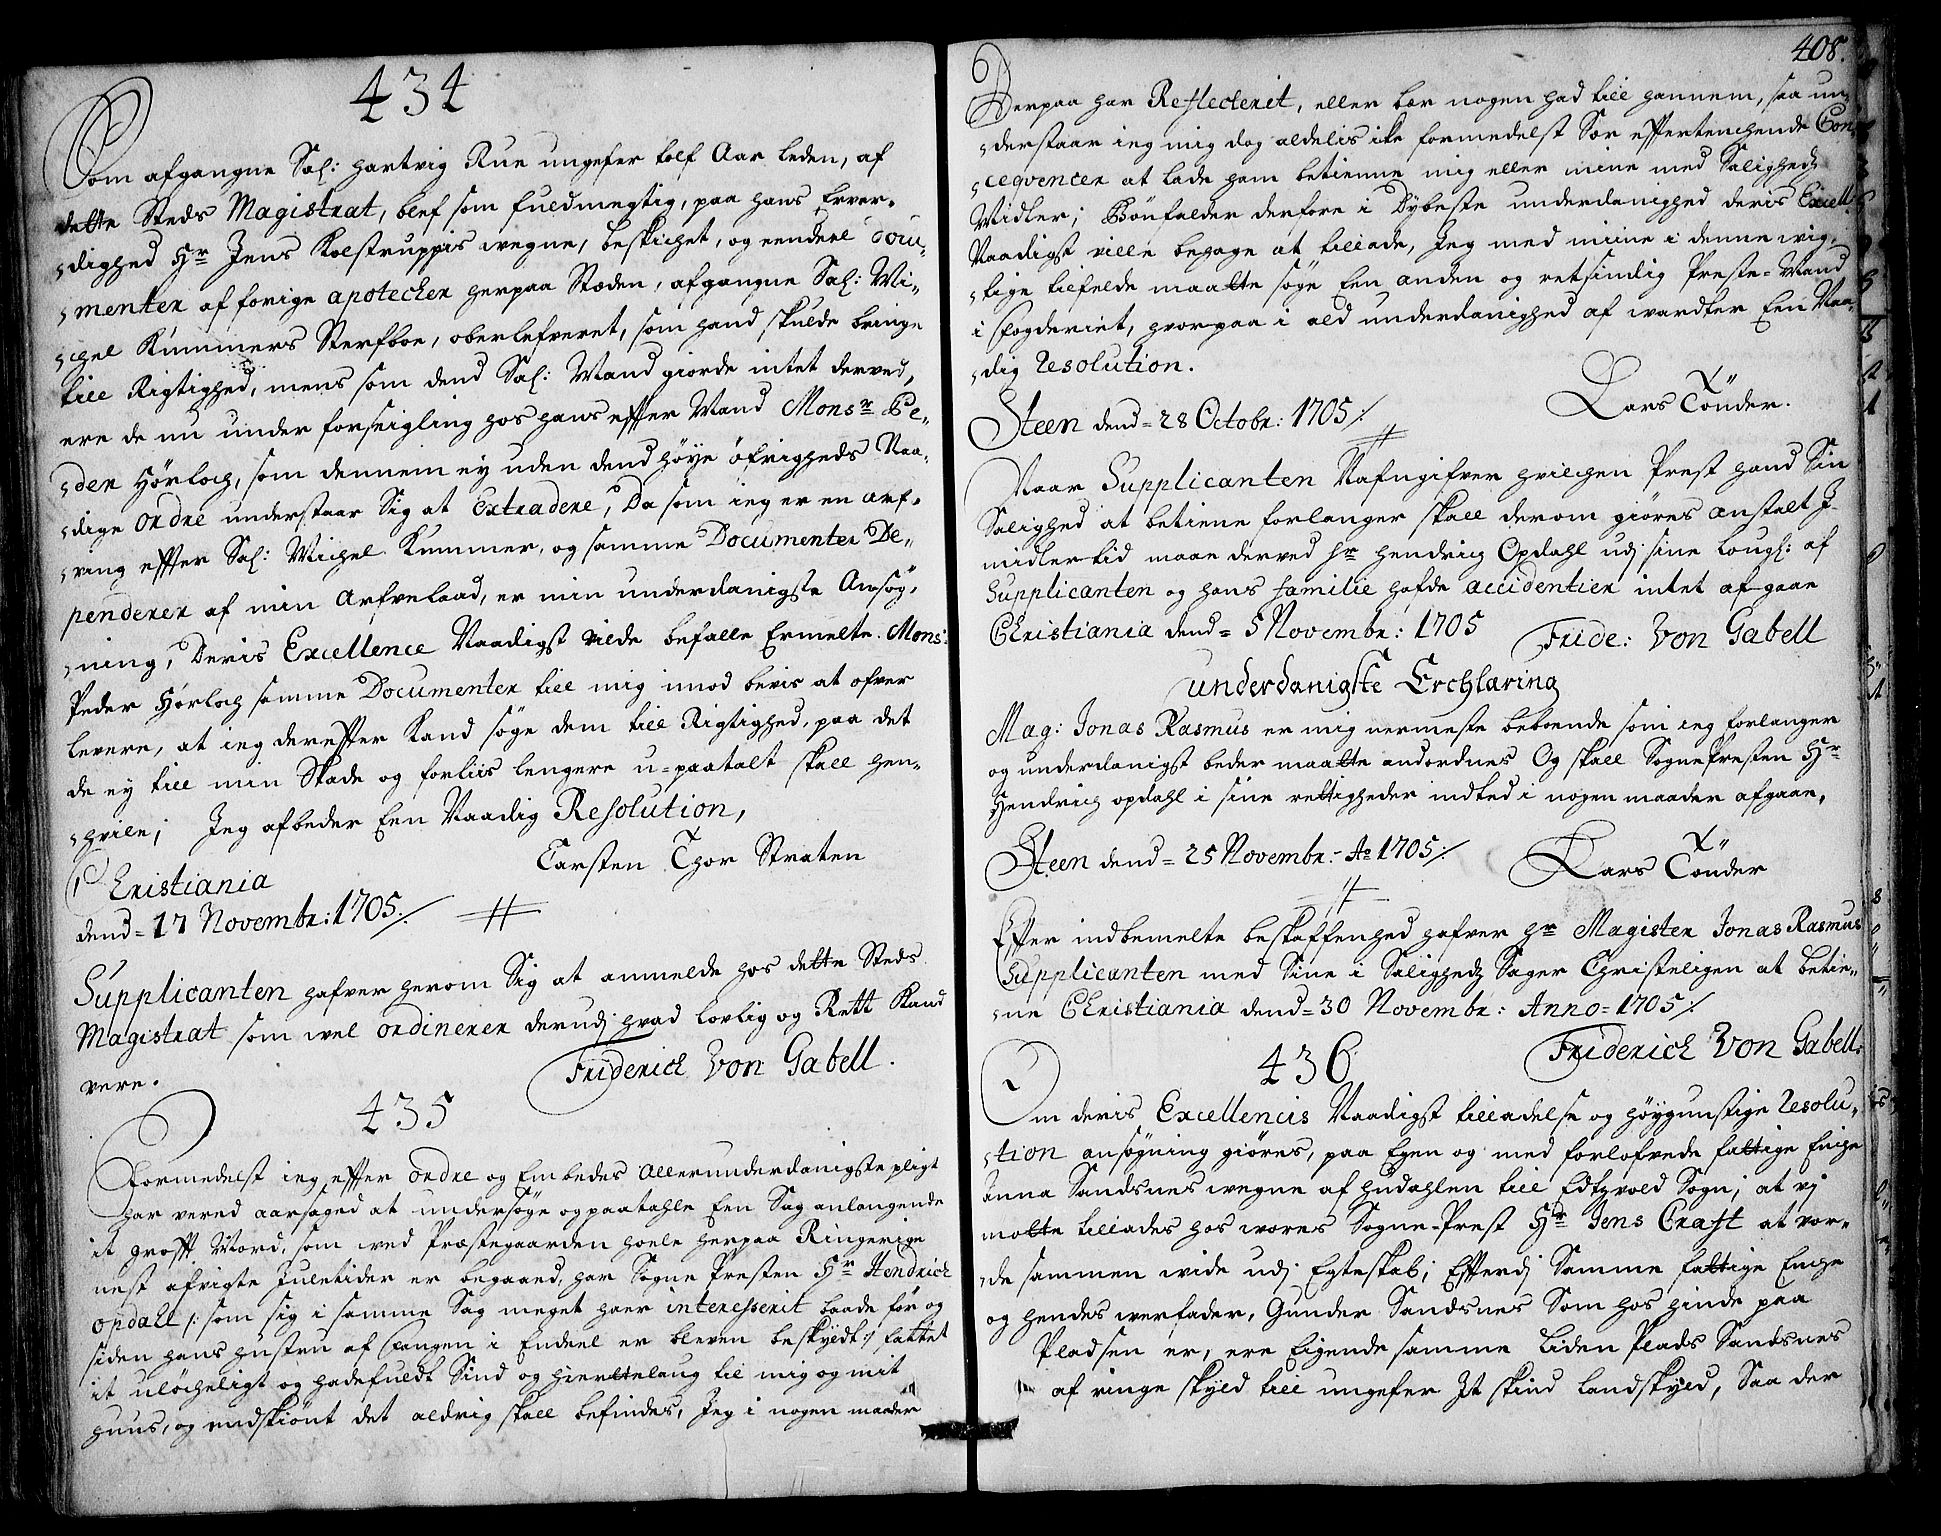 434
Som afgangne Sal: Hartvig Rue ungefer tolf Aar leden, af
dette Steds Magistrat, blef som fuldmegtig, paa hans Erver-
dighed Hr Jens Kolstruppis wegne, beskichet, og eendeel docu-
menter af forige apotecher herpaa Stæden, afgangne Sal: Mi-
chel Kummers Sterfboe, oberlefveret, som hand skulde bringe
till Rigtighed, mens som dend Sal: Mand giorde intet derved,
ere de nu under forseigling hos hans effter Mand Monsr Pe-
der Hörloch, som dennem ey uden dend höye öfrigheds Naa-
dige Ordre understaar Sig at Extradere, Da som ieg er en Arf-
ving effter Sal: Michel Kummer, og samme Documenter De-
penderer af min Arfvelaad, er min underdanigste Ansög-
ning, Deris Excellence Naadigst vilde befalle Ermelte Mons:
Peder Hörloch samme Documenter till mig imod bevis at ofver
levere, at ieg dereffter Kand söge dem till Rigtighed, paa det
de ey till min Skade og forliis lengere u-paatalt skall hen-
hvile; Jeg afbeder Een Naadig Resolution,
Carsten Thor Straten
Christiania
dend= 17 Novembr: 1705:/
Supplicanten hafver herom Sig at anmelde hos dette Steds
Magistrat som wel ordinerer derudj hvad lovlig og Rett Kand
vere.
Friderich Von Gabell.
435
Formedelst ieg effter ordre og Embedes allerunderdanigste pligt
har vered aarsaged at undersöge og paatahle Een Sag anlangende
it grofft Mord, som wed Præstegaarden hoele herpaa Ringerige
nest afvigte Juletider er begaaed, har Sogne Presten Hr Hendrich
Opdahl /: som sig i samme Sag meget haer interesserit baade før og
siden hans hustru af fangen i Endeel er bleven beskyldt:/ fattet
it ulöcheligt og hadefuldt Sind og hiertelaug til mig og mit
huus, og endskiönt det aldrig skall befindes, Jeg i nogen maader
408.
Derpaa har Reflecterit, eller bær nogen had till hannem, saa un-
derstaar ieg mig dog aldelis icke formedelst Sær effterteuchende Con-
ceqvencer at lade ham betienne mig eller mine med Saligheds
Midler; Bönfalder derfore i Dybeste underdanighed deris Excell:
Naadigst ville behage at tillade, Jeg med miine i denne wig-
tige tilfelde maatte söge Een anden og retsindig Preste-Mand
i fogderiet, hvorpaa i ald underdanighed af wardter Een Naa-
dig Resolution.
Lars Tönder.
Steen dend= 28 Octobr: 1705:/
Naar Supplicanten Nafngifver hvilchen Prest hand Sin
Salighed at betiene forlanger skall derom giöres anstalt J-
midlertid maae derved hr hendrich Opdahl udj sine lougl: af
Supplicanten og hans familie hafde accidentier intet af gaae
Christiania dend= 5 Novembr: 1705
Fride: Von Gabell
underdanigste Erchlæring
Mag: Jonas Rasmus er mig nermeste beboende som ieg forlanger
og underdanigst beder maatte andordnes Og skall SognePresten Hr
Hendrich opdahl i sine rettigheder indted i nogen maader afgaae,
Steen dend= 25 Novembr:- Ao 1705:/
Lars Tönder
Effter indbemelte beskaffenhed hafver hr Magister Jonas Rasmus
Supplicanten med Sine i Saligheds Sager Christeligen at betie-
ne Christiania dend= 30 Novembr: Anno= 1705:/
Friderich Von Gabell.
436
Om deris Excellencis Naadigst tilladelse og höygunstige Resolu-
tion ansögning giöres, paa Egen og med forlofvede fattige Enche
Anna Sandsnes wegne af hudahlen till Edtzvold Sogn; at vj
motte tillades hos wores Sogne-Prest Hr Jens Craft at vor-
de sammen vide udj Egteskab; Efferdj Samme fattige Enche
og hendes werfader, Gunder Sandsnes Som hos hinde paa
Pladsen er, ere Eigende samme Liden Plads Sandsnes
af ringe skyld till ungefer Jt skind landskyld, Saa der